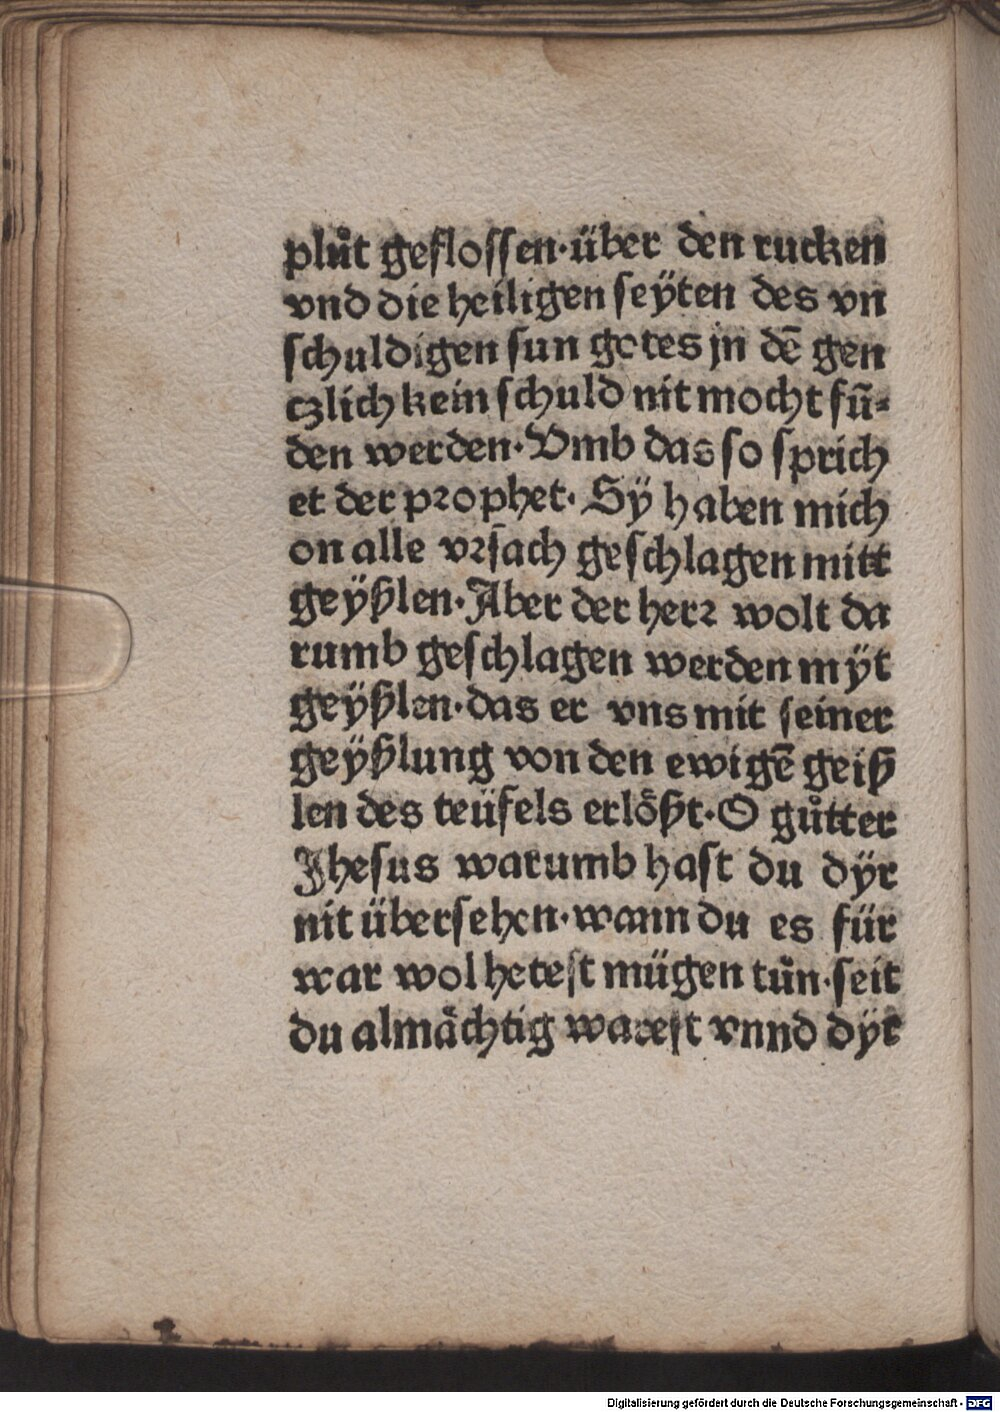 plůt geflossen·über den rucken
vnd die heiligen seÿten des vn
schuldigen sun gotes jn dē gen
czlich kein schuld nit mocht fū-
den werden·Vmb das so sprich
et der prophet·Sÿ haben mich
on alle vrsach geschlagen mitt
geÿßlen·Aber der herr wolt da
rumb geschlagen werden mÿt
geÿßlen·das er vns mit seiner
geÿßlung von den ewigē geiß
len des teüfels erlößt·O gůtter
Jhesus warumb hast du dÿr
nit übersehen·wann du es für
war wol hetest mügen tůn·seit
du almächtig warest vnnd dÿr
Digitalisierung gefördert durch die Deutsche Forschungsgemeinschaft - DFG